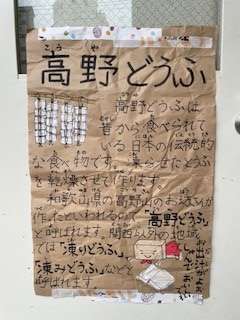 こうや
高野どうふ
高野どうふは
昔から食べられて
いる日本の伝統的
な食べ物です。凍らせたとうふ
を乾燥させて作ります。
和歌山県の高野山のお坊さんが
作ったといわれるので「高野どうふ」
と呼ばれます。関西以外の地域
では「凍りどうふ」、
「凍みどうふ」などと
呼ばれます。